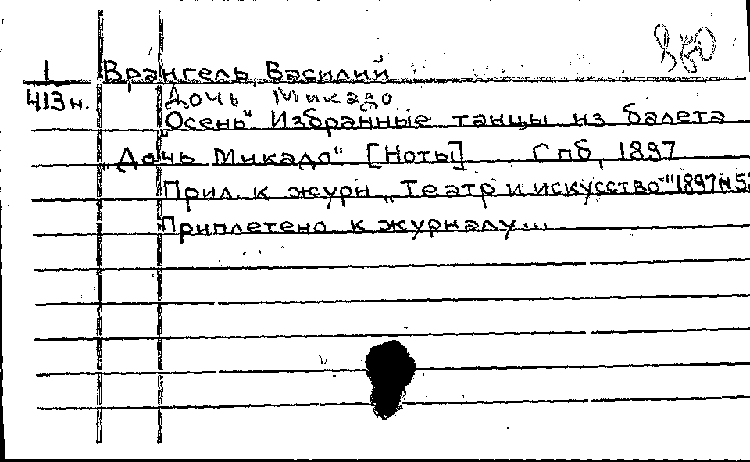 850
I Врангель, Василий
413н. Дочь Микадо
"Осень" Избранные танцы из балета
"Дочь Микадо" [Ноты] Спб, 1897
Прил. к журн „Театр и искусство" 1897 №5
Приплетено к журналу...